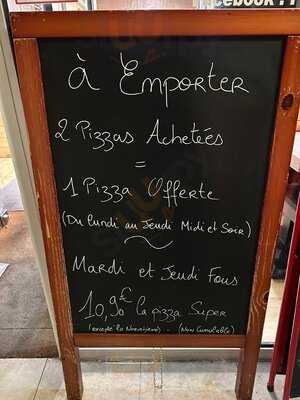 à Emporter
2 Pizzas Achetées
=
1 Pizza Offerte
(Du lundi au Jeudi Midi et Soir)
Mardi et Jeudi Fous
10,90€ la pizza Super
(excepté la Norvégienne) - (Non Cumulable)